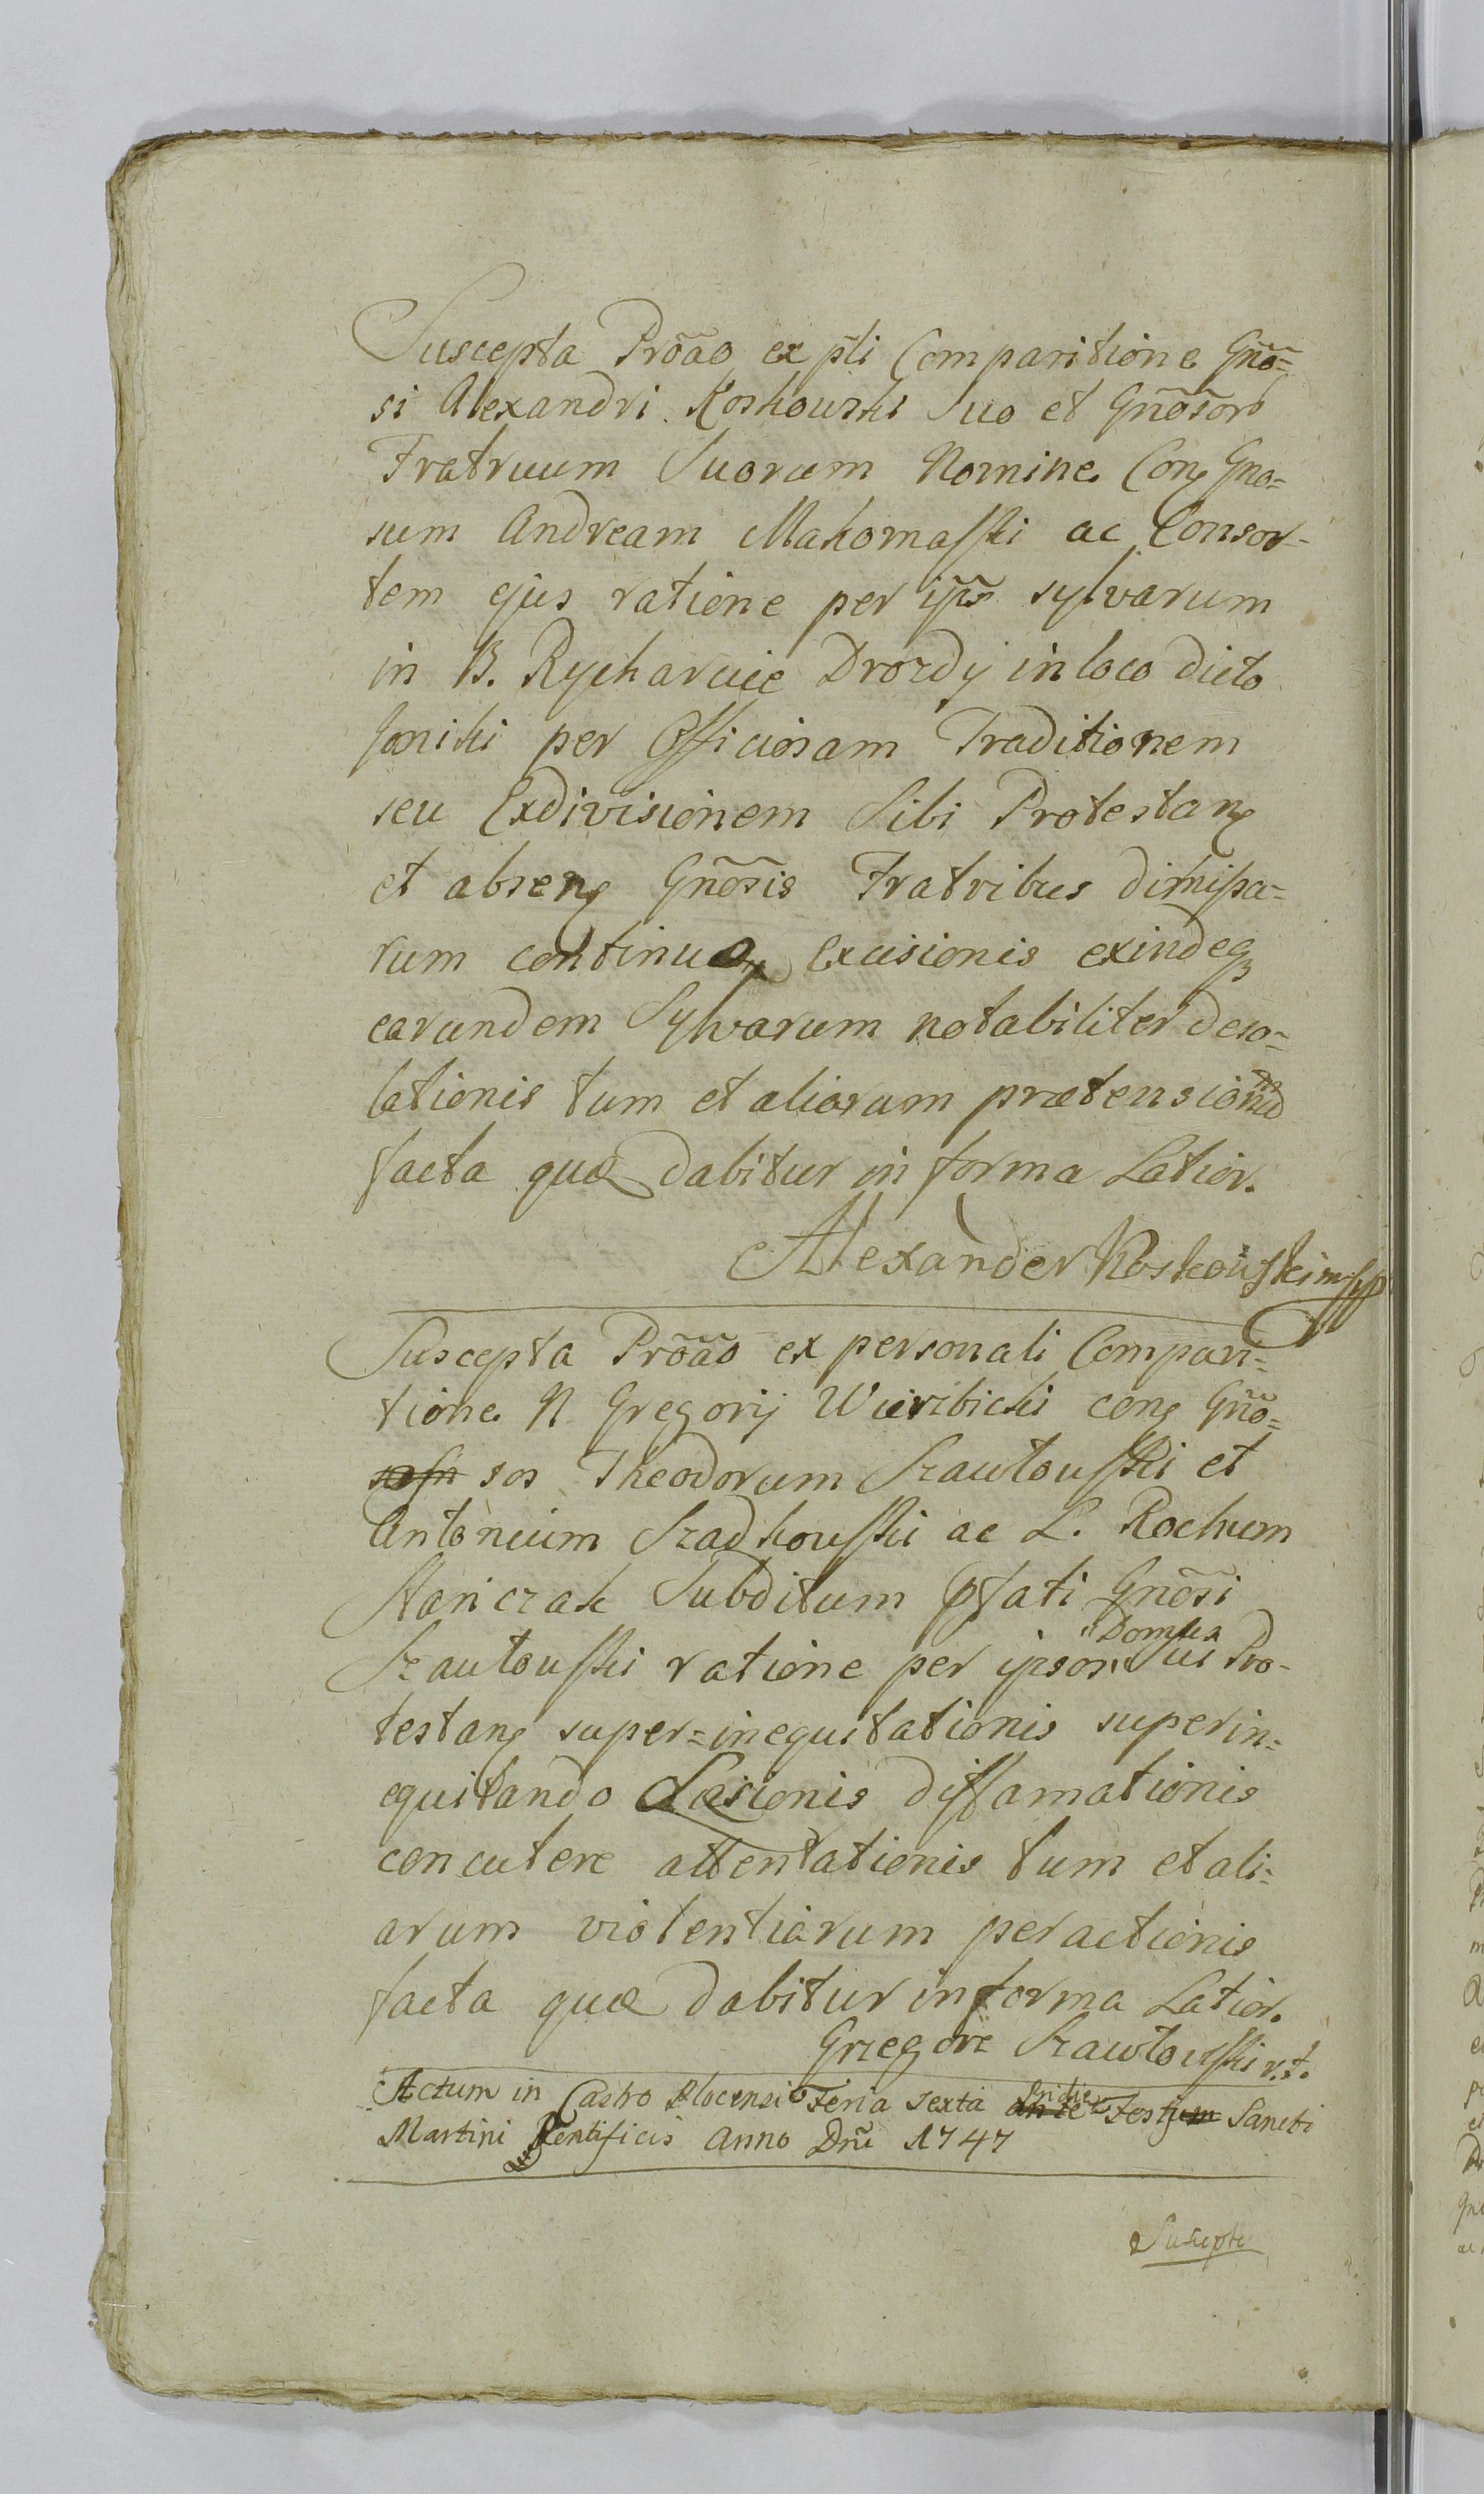 Suscepta Prõão ex p̃li Comparitione Gñõ=
si Alexandri Koskowski Suo et Gñõsor
Fratruum Suorum Nomine Con Gno=
sum Andream Makomaski ac Consor-
tem ejus ratione per ip̃s sylvarum
in B. Rycharcice Drozdy in loco dicto
per Officiosam Traditionem
seu Exdivisionem Sibi Protestan
et absen Gñosis Fratribus dimissa=
rum continuo Excisionis exindeq
earundem Sylvarum notabiliter deso=
lationis tum et aliorum prætensionũ
facta quæ dabitur in forma Latior.
Alexander Koskowski mpp
Suscepta Prõão ex personali Compari=
tione N Gregorij Wierzbicki con Gño=
sos Theodorum Szawłowski et
Antonium Szadkowski ac L. Rochum
Stanczak Subditum pfati Gñosi
Szawłowski ratione per ipsor Domus sui Pro-
testan super=inequitationis superin=
equitando Læsionis diffamationis
concutere attentationis tum et ali=
arum violentiarum peractionis
facta quæ dabitur in forma Latior.
Grzegorz Szawłowski v.s.
Actum in Castro Plocensi Feria sexta pridie Festum Sancti
Martini Pontificis Anno Dñi 1747
Suscepta